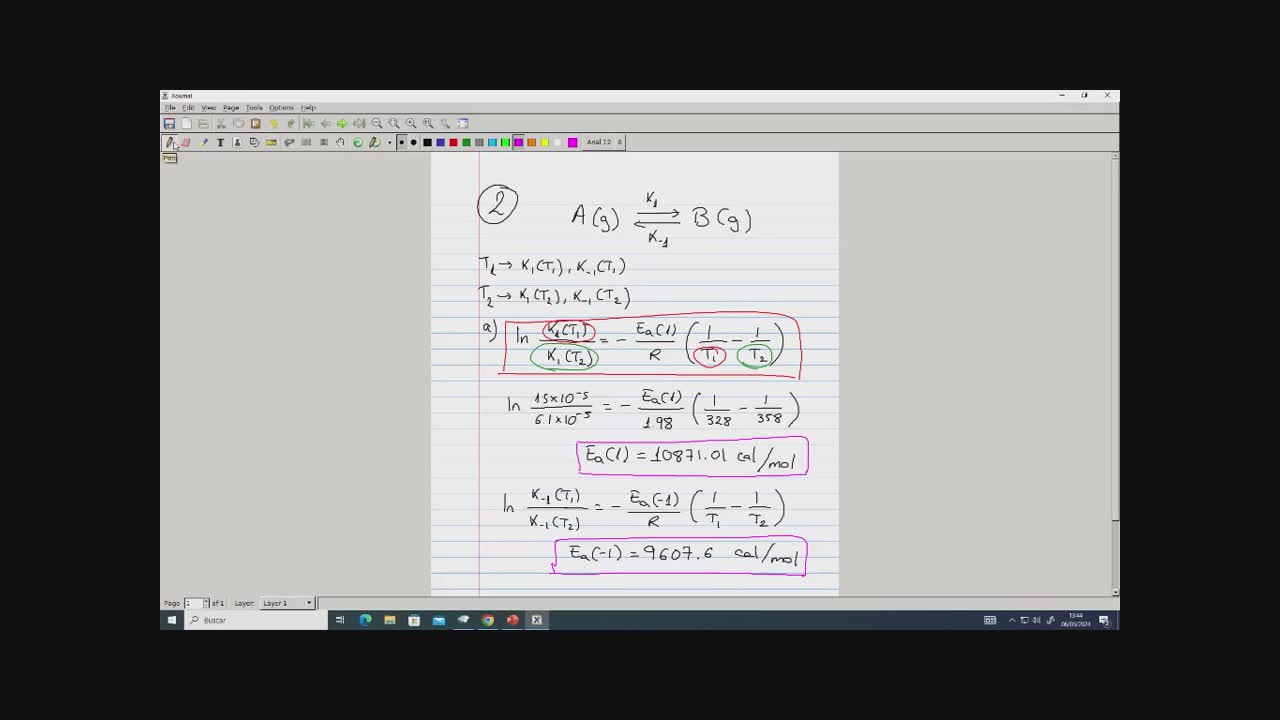 Xournal
File Edit View Page Tools Options Help
Arial 12
Pen
2
A(g) ⇌ B(g)
K₁
K₋₁
T₁ → K₁(T₁), K₋₁(T₁)
T₂ → K₁(T₂), K₋₁(T₂)
a) ln K₁(T₁)/K₁(T₂) = - Ea(1)/R (1/T₁ - 1/T₂)
ln 1.5×10⁻⁵/6.1×10⁻⁵ = - Ea(1)/1.98 (1/328 - 1/358)
Ea(1) = 10871.01 cal/mol
ln K₋₁(T₁)/K₋₁(T₂) = - Ea(-1)/R (1/T₁ - 1/T₂)
Ea(-1) = 9607.6 cal/mol
Page 1 of 1 Layer: Layer 1
Buscar
13:44
06/03/2024